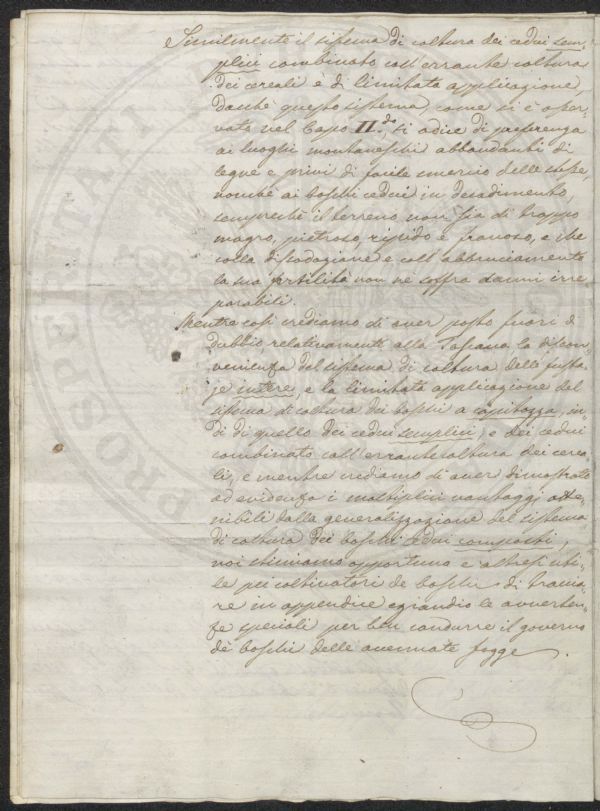 Similmente il sistema di coltura dei cedui sem-
plici combinato coll'errante coltura
dei cereali è di limitata applicazione,
dacché questo sistema, come si è osser-
vato nel Capo II.do si adice di preferenza
ai luoghi montaneschi abbondanti di
legne e privi di facile smercio delle stesse,
nonché ai boschi cedui in decadimento,
sempreché il terreno non sia di troppo
magro, pietroso, ripido e franoso, e che
colla disodazione e coll'abbruciamento
la sua fertilità non ne soffra danni irre-
parabili.
Mentre così crediamo di aver posto fuori di
dubbio relativamente alla Toscana la discon-
venienza del sistema di coltura delle fusta-
je intere, e la limitata applicazione del
sistema di coltura dei boschi a capitozza, in-
di di quello dei cedui semplici, e dei cedui
combinato coll'errante coltura dei cerea-
li, e mentre crediamo di aver dimostrato
ad evidenza i moltiplici vantaggj otte-
nibili dalla generalizzazione del sistema
di coltura dei boschi cedui composti,
noi stimiamo opportuno e altresì uti-
le pei coltivatori de boschi di traccia-
re in appendice eziandio le avverten-
ze speciali per ben condurre il governo
de' boschi delle accennate fogge.
PROSPERITATI